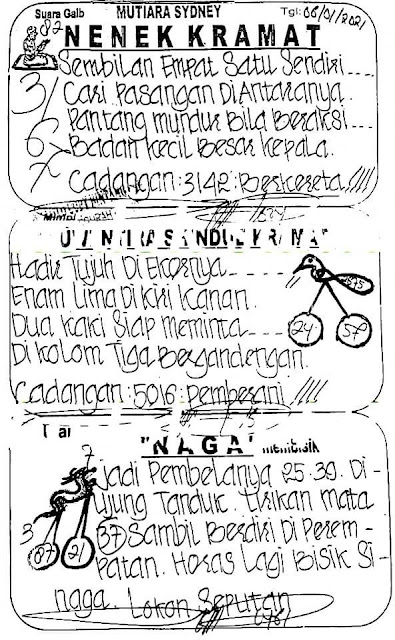 Suara Gaib
MUTIARA SYDNEY
Tgl: 06/01/2021
82
NENEK KRAMAT
Sembilan Empat Satu Sendiri
Cari Pasangan DiAntaranya.
Pantang mundur Bila Beraksi
Badan kecil Besar kepala.
Cadangan:3142:Berkereta
3
6
7
Hadir Tujuh Di Ekornya
Enam Lima Di Kiri Kanan.
Dua kaki Siap Meminta
Di kolom Tiga Bergandengan.
Cadangan:5016:Pemberani
24
50
"NAGA"
7
jadi Pembelanya 25.39. Di-
Ujung Tanduk. Lirikan mata
37 Sambil Berdiri Di Perem-
patan. Horas Lagi Bisik Si
naga. Lokon Seputan
3
87
21